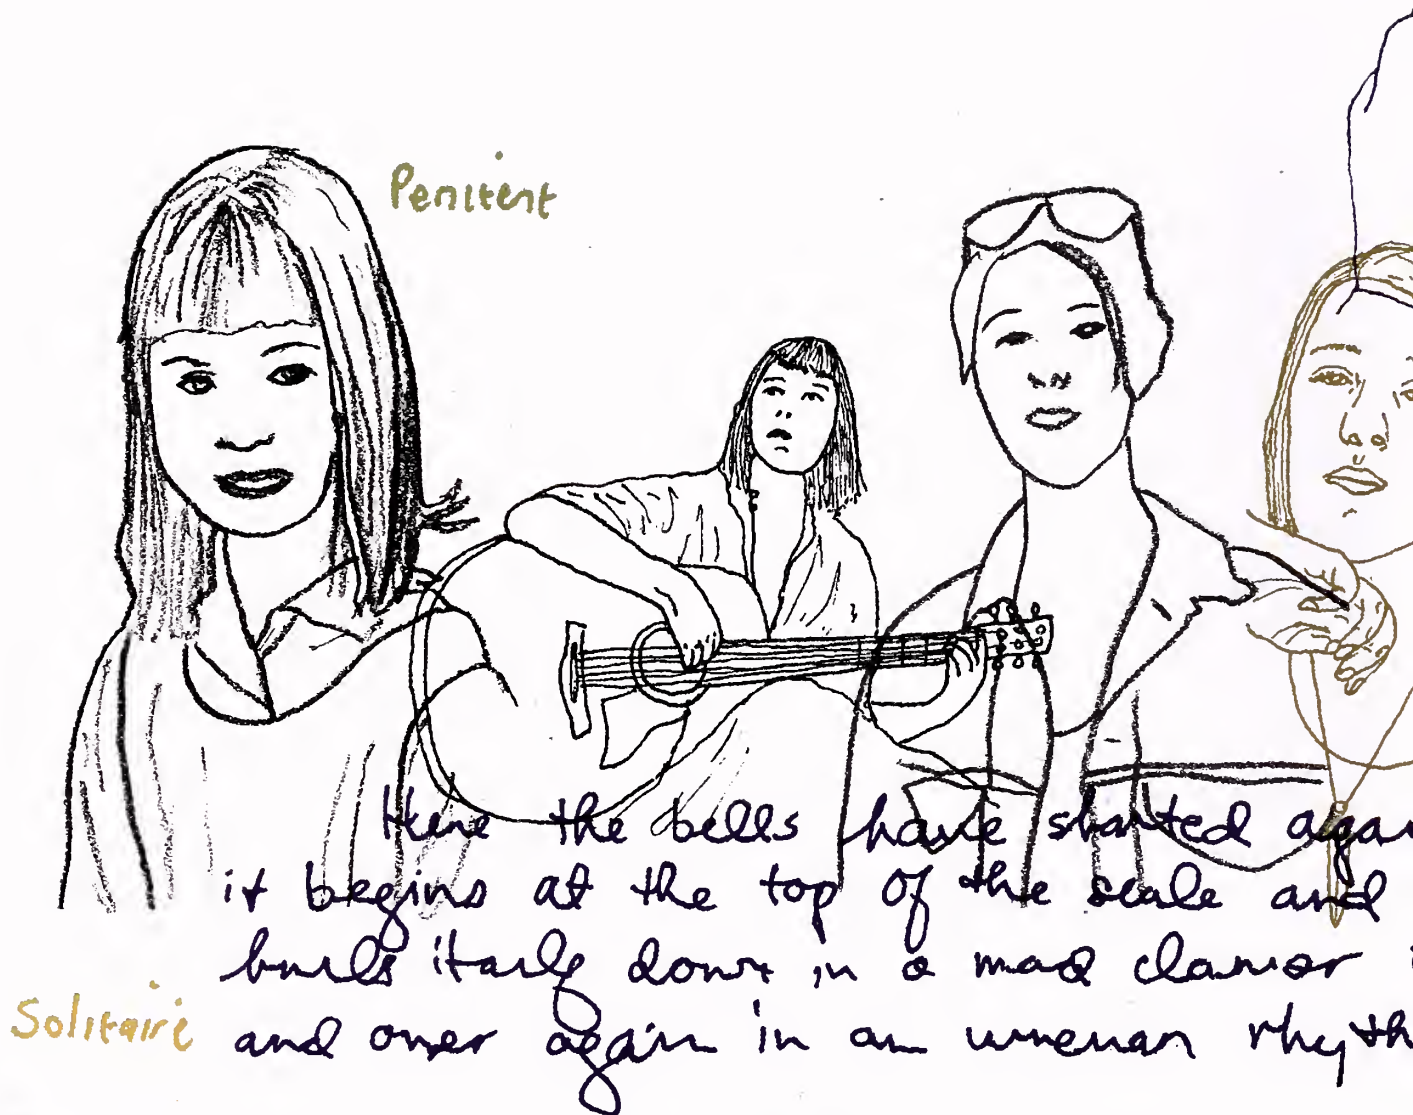 Penitent
Here the bells have started agai
it begins at the top of the scale and
hurls itself down in a mad clamor i
Solitaire
and over again in an uneven rhyth